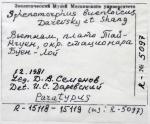 Зоологический Музей Московского университета
Sphenomorphus buenloicus
Darevsky et Shang
Вьетнам, плато Тай-
Нгуен, окр. стационара
Буен-Лой
12.1981
Leg. Д.В. Семенов
Det. И.С. Даревский
Paratypus
R-15118-15119 (из: R-5097)
R-№ 5097